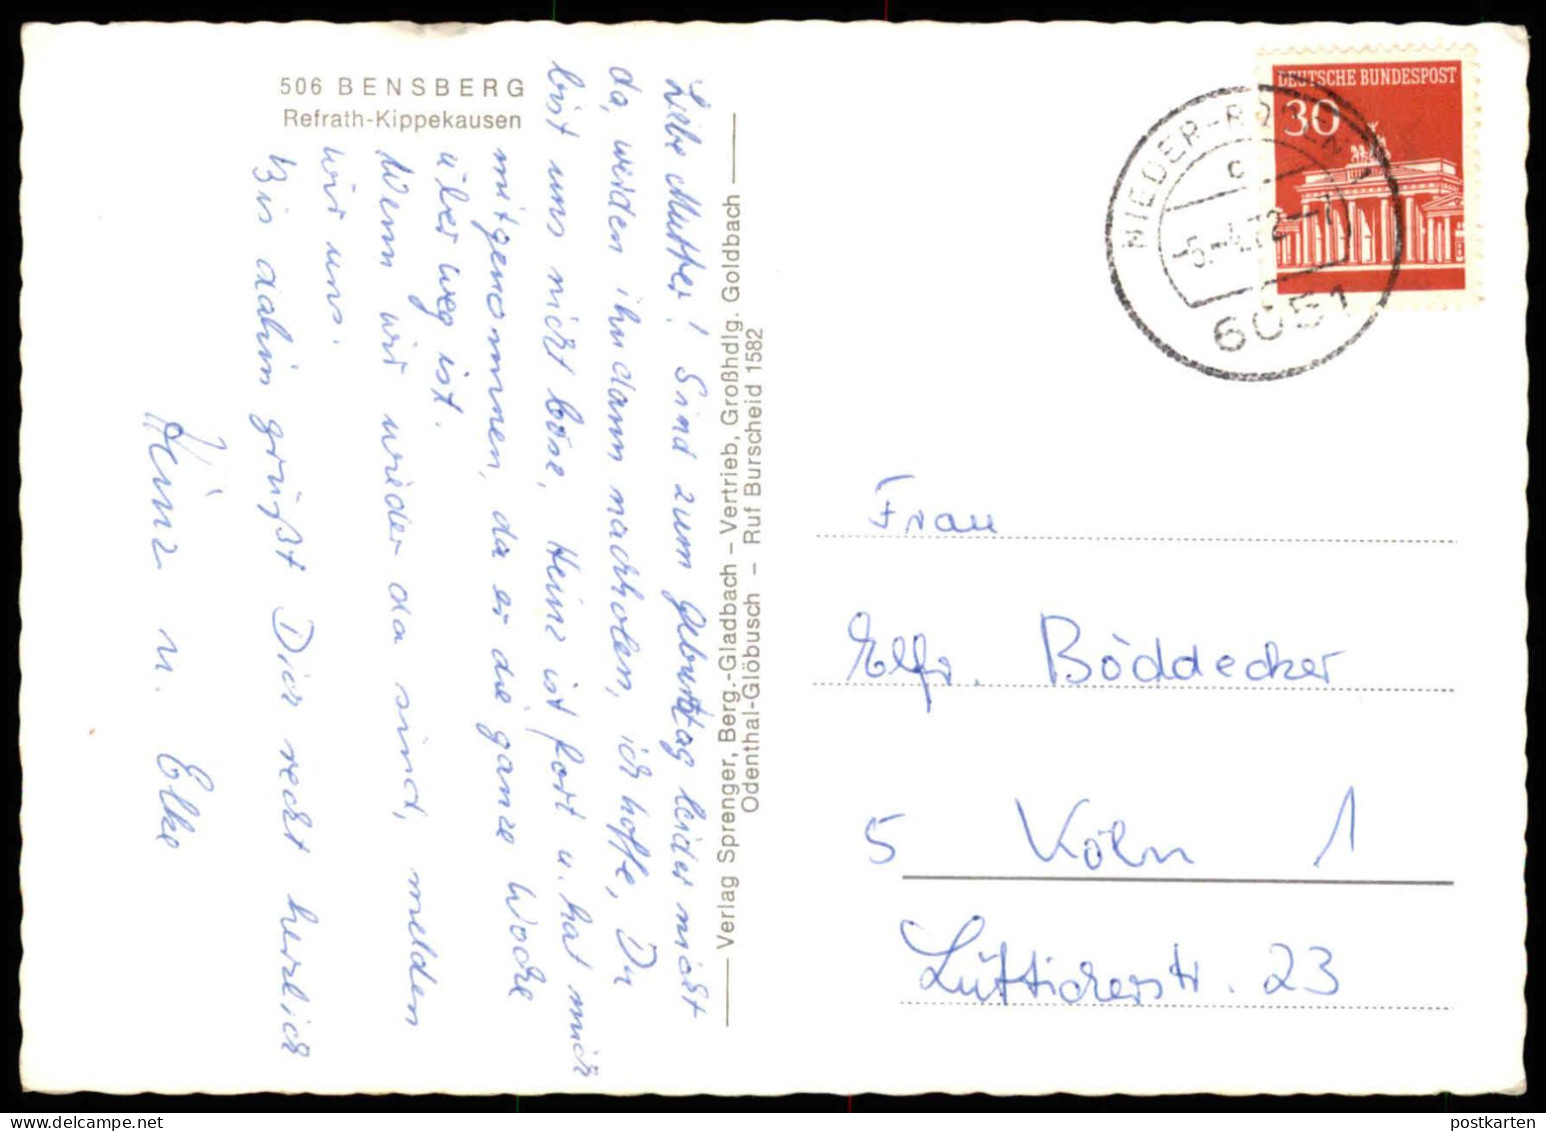 506 BENSBERG
Refrath-Kippekausen
Liebe Mutter! Sind zum Geburtstag leider nicht
da, werden ihn dann nachholen, ich hoffe, Du
bist uns nicht böse. Heinz ist fort u. hat mich
mitgenommen, da er die ganze Woche
über weg ist.
Wenn wir wieder da sind, melden
wir uns.
Bis dahin grüßt Dich recht herzlich
Heinz u. Elke
Verlag Sprenger, Berg.-Gladbach – Vertrieb, Großhdlg. Goldbach
Odenthal-Glöbusch – Ruf Burscheid 1582
DEUTSCHE BUNDESPOST
30
NIEDER-RODEN
c
-5.-4.72-
6051
Frau
Elfr. Böddecker
5 Köln 1
Lütticherstr. 23
postkarten